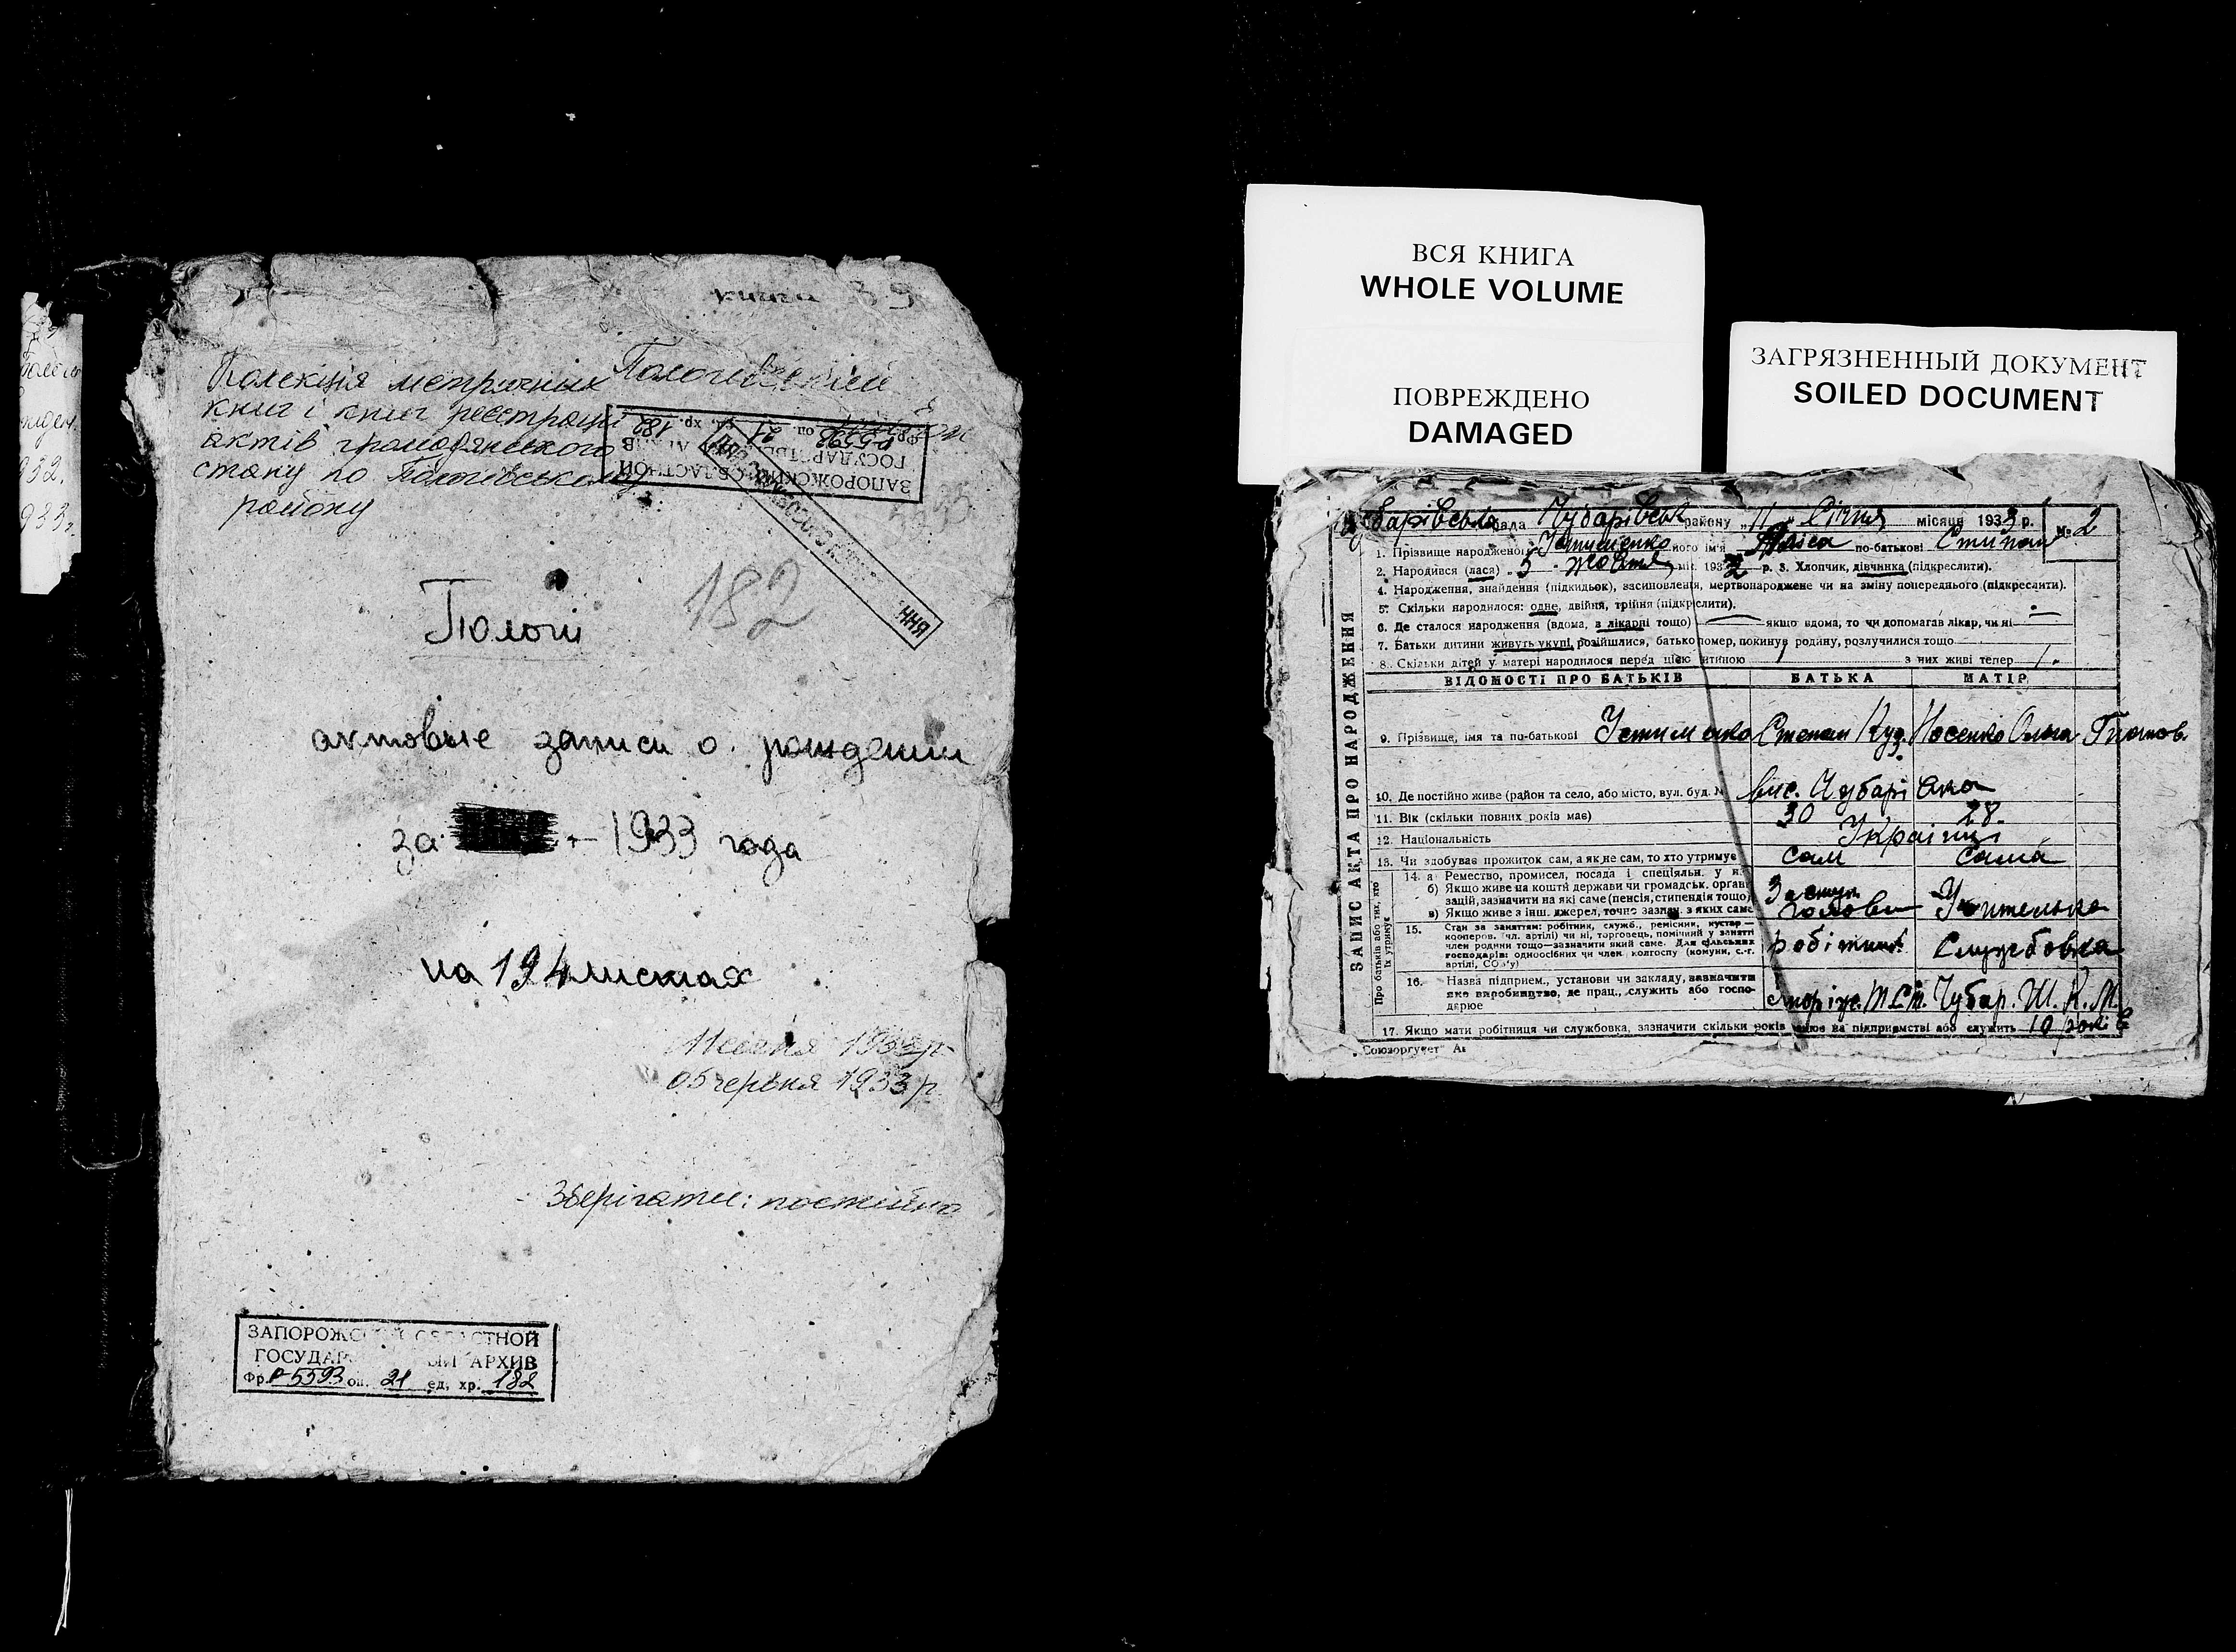 книга 39
Колекція метричних
книг і книг реєстрації
актів громадянського
стану по Пологівському
району
Пологовский
район
ЗАПОРОЖСКИЙ ОБЛАСТНОЙ
ГОСУДАРСТВЕННЫЙ АРХИВ
Фр. Р-5593 оп. 21 ед. хр. 182
182
Пологи
актовые записи о рождении
за - 1933 года
на 194 листах
11 січня 1933 р
05 червня 1933 р.
Зберігати: постійно
ЗАПОРОЖСКИЙ ОБЛАСТНОЙ
ГОСУДАР ЫЙ АРХИВ
Фр. Р-5593 оп. 21 ед. хр. 182
932.
933 г
ВСЯ КНИГА
WHOLE VOLUME
ПОВРЕЖДЕНО
DAMAGED
ЗАГРЯЗНЕННЫЙ ДОКУМЕНТ
SOILED DOCUMENT
ЗАПИС АКТА ПРО НАРОДЖЕННЯ
барівська рада Чубарівськ району „11" Січня місяця 1933 р. № 2
1. Прізвище народженої Устименко його ім'я по-батькові Степан
2. Народився (лася) „5" жовтня міс. 1932 р. 3. Хлопчик, дівчинка (підкреслити).
4. Народження, знайдення (підкидьок), засиновлення, мертвонароджене чи на зміну попереднього (підкреслити).
5. Скільки народилося: одне, двійня, трійня (підкреслити).
6. Де сталося народження (вдома, в лікарні тощо) — якщо вдома, то чи допомагав лікар, чи ні —
7. Батьки дитини живуть укупі, розійшлися, батько помер, покинув родину, розлучилися тощо
8. Скільки дітей у матері народилося перед цією дитиною 1 з них живі тепер 1.
ВІДОМОСТІ ПРО БАТЬКІВ БАТЬКА МАТІР
9. Прізвище, імя та по-батькові Устименко Степан Куз. Носенко Ольга
10. Де постійно живе (район та село, або місто, вул. буд. № вис. Чубарівка
11. Вік (скільки повних років має) 30 28.
12. Національність Українці
13. Чи здобуває прожиток сам, а як не сам, то хто утримує сам сама
Про батьків або тих, хто їх утримує
14. а Ремество, промисел, посада і спеціяльн. у н.
б) Якщо живе на кошти держави чи громадськ. органі
зацій, зазначити на які саме (пенсія, стипендія тощо)
в) Якщо живе з інш. джерел, точно зазнач. з яких саме
Заступ. голови Учителька
15. Стан за заняттям: робітник, служб., ремісник, кустар—
кооперов. (чл. артілі) чи ні, торговець, помічний у занятті
член родини тощо—зазначити який саме. Для сільських
господарів: одноосібних чи член колгоспу (комуни, с.-г.
артілі, СОЗ'у)
робітник Службовка
16. Назва підприєм., установи чи закладу, зазначити
яке виробництво, де прац., служить або госпо-
дарює
Чубар. Ш. К. М.
17. Якщо мати робітниця чи службовка, зазначити скільки років працює на підприємстві або служить 10 років
„Союзоргучет"